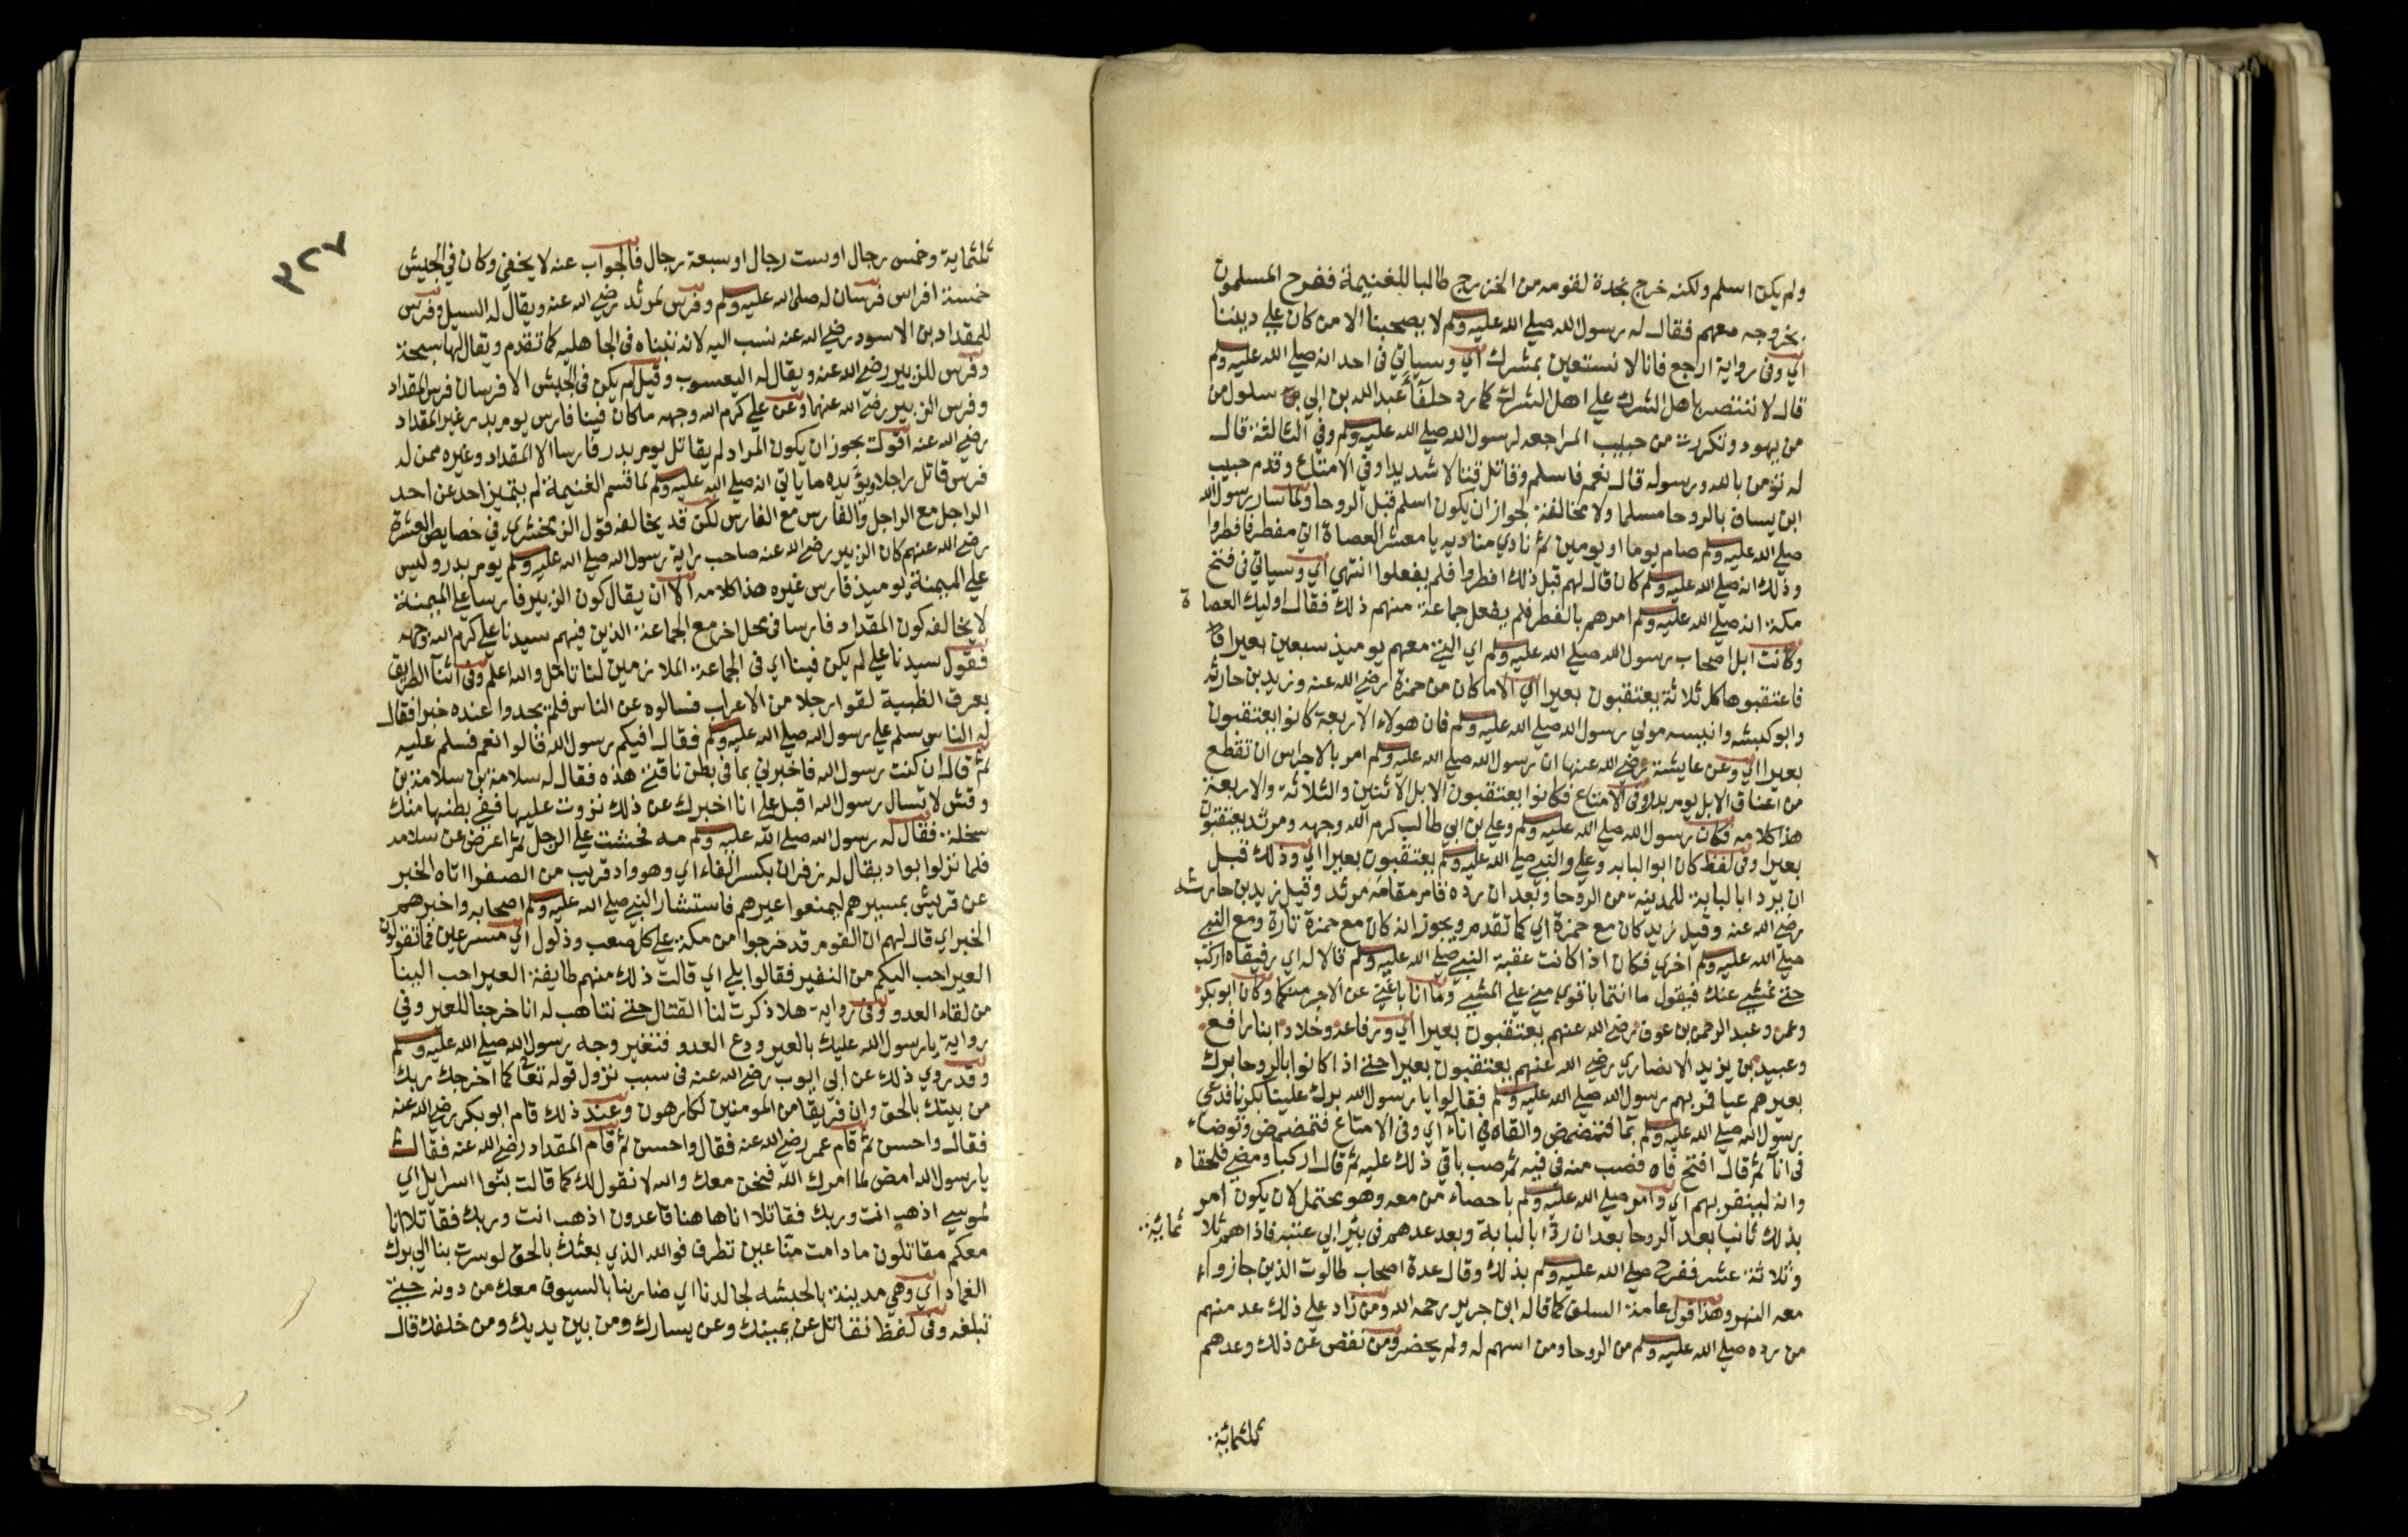 ولم يكن اسلم ولكنه خرج نجدة لقومه من الخزرج طالبا للغنيمة ففرح المسلمون
بخروجه معهم فقال له رسول الله صلي الله عليه وسلم لا يصحبنا الا من كان علي ديننا
اي وفي رواية ارجع فانا لا نستعين بمشرك اي وسياتي في احد انه صلي الله عليه وسلم
قال لا ننتصر باهل الشرك علي اهل الشرك كما رد حلفآء عبد الله بن ابي بن سلول من
من يهود وتكررت من حبيب المراجعه لرسول الله صلي الله عليه وسلم وفي الثالثة قال
له تؤمن بالله ورسوله قال نعم فاسلم وقاتل قتالا شديدا وفي الامتاع وقدم حبيب
ابن يساف بالروحا مسلما ولا مخالفة لجواز ان يكون اسلم قبل الروحا ولما سار رسول الله
صلي الله عليه وسلم صام يوما او يومين ثم نادي مناديه يا معشر العصاة اني مفطر فافطروا
وذلك انه صلي الله عليه وسلم كان قال لهم قبل ذلك افطروا فلم يفعلوا انتهي اي وسياتي في فتح
مكة انه صلي الله عليه وسلم امرهم بالفطر فلم يفعل جماعة منهم ذلك فقال اوليك العصاة
وكانت ابل اصحاب رسول الله صلي الله عليه وسلم اي التي معهم يوميذ سبعين بعيرا
فاعتقبوها كل ثلاثة يعتقبون بعيرا اي الا ما كان من حمزة رضي الله عنه وزيد بن حارثه
وابو كبشه وانيسه مولي رسول الله صلي الله عليه وسلم فان هولاء الاربعة كانوا يعتقبون
بعيرا اي وعن عايشة رضي الله عنها ان رسول الله صلي الله عليه وسلم امر بالاجراس ان تقطع
من اعناق الابل يوم بدر وفي الامتاع فكانوا يعتقبون الابل الاثنين والثلاثة والاربعة
هذا كلامه فكان رسول الله صلي الله عليه وسلم وعلي بن ابي طالب كرم الله وجهه ومرثد يعتقبون
بعيرا وفي لفظ كان ابو البابه وعلي والنبي صلي الله عليه وسلم يعتقبون بعيرا اي وذلك قبل
ان يرد ابا لبابة للمدينة من الروحا وبعد ان رده قام مقامه مرثد وقيل زيد بن حارثه
رضي الله عنه وقيل زيد كان مع حمزة اي كما تقدم ويجوز انه كان مع حمزة تارة ومع النبي
صلي الله عليه وسلم اخري فكان اذا كانت عقبة النبي صلي الله عليه وسلم قالا له اي رفيقاه اركب
حتي نمشي عنك فيقول ما انتما باقوي مني علي المشي وما انا باغني عن الاجر منكما وكان ابو بكر
وعمر وعبد الرحمن بن عوف رضي الله عنهم يعتقبون بعيرا اي ورفاعه وخلاد ابنا رافع
وعبيد بن يزيد الانصاري رضي الله عنهم يعتقبون بعيرا حتي اذا كانوا بالروحا برك
بعيرهم عيا فمر بهم رسول الله صلي الله عليه وسلم فقالوا يا رسول الله برك علينا بكرنا فدعي
رسول الله صلي الله عليه وسلم بمآ فتمضمض والقاه في انآء اي وفي الامتاع فتمضمض وتوضاء
في انآء ثم قال افتح فاه فصب منه في فيه ثم صب باقي ذلك عليه ثم قال اركبا ومضي فلحقاه
وانه لينفر بهم اي وامر صلي الله عليه وسلم باحصاء من معه وهو يحتمل لان يكون امر
بذلك ثانيا بعد الروحا بعد ان رد ابا لبابة وبعد عدهم في بئر ابي عتبة فاذا هم ثلاثمائة
وثلاثة عشر ففرح صلي الله عليه وسلم بذلك وقال عدة اصحاب طالوت الذين جازوا
معه النهر وهذا قول عامة السلف كما قاله ابن جرير رحمه الله ومن زاد علي ذلك عد منهم
من رده صلي الله عليه وسلم من الروحا ومن اسهم له ولم يحضر ومن نقص عن ذلك وعدهم
ثلثماية
٣٢٧
ثلثماية وخمس رجال او ست رجال او سبعة رجال فالجواب عنه لا يخفي وكان في الجيش
خمسة افراس فرسان له صلي الله عليه وسلم وفرس لمرثد رضي الله عنه ويقال له السيل وفرس
للمقداد بن الاسود رضي الله عنه نسب اليه لانه تبناه في الجاهليه كما تقدم ويقال لها سبحة
وفرس للزبير رضي الله عنه ويقال له اليعسوب وقيل لم يكن في الجيش الا فرسان فرس المقداد
وفرس الزبير رضي الله عنهما وعن علي كرم الله وجهه ما كان فينا فارس يوم بدر غير المقداد
رضي الله عنه اقول يجوز ان يكون المراد لم يقاتل يوم بدر فارسا الا المقداد وغيره ممن له
فرس قاتل راجلا ويؤيده ما ياتي انه صلي الله عليه وسلم لما قسم الغنيمة لم يتميز احد عن احد
الراجل مع الراجل والفارس مع الفارس لكن قد يخالفه قول الزمخشري في خصايص العشرة
رضي الله عنهم كان الزبير رضي الله عنه صاحب راية رسول الله صلي الله عليه وسلم يوم بدر وليس
علي الميمنة يوميذ فارس غيره هذا كلامه الا ان يقال كون الزبير فارسا علي الميمنة
لا يخالفه كون المقداد فارسا في محل اخر مع الجماعة الذين فيهم سيدنا علي كرم الله وجهه
فقول سيدنا علي لم يكن فينا اي في الجماعة الملازمين لنا تامل والله اعلم وفي اثنآ الطريق
بعرف الظبية لقوا رجلا من الاعراب فسالوه عن الناس فلم يجدوا عنده خبرا فقال
له الناس سلم علي رسول الله صلي الله عليه وسلم فقال افيكم رسول الله قالوا نعم فسلم عليه
ثم قال ان كنت رسول الله فاخبرني بما في بطن ناقتي هذه فقال له سلامة بن سلامة بن
وقش لا تسال رسول الله اقبل علي انا اخبرك عن ذلك نزوت عليها ففي بطنها منك
سخلة فقال له رسول الله صلي الله عليه وسلم مه فحشت علي الرجل ثم اعرض عن سلامه
فلما نزلوا بواد يقال له زفران بكسر الفاء اي وهو واد قريب من الصفرا اتاه الخبر
عن قريش بمسيرهم ليمنعوا عيرهم فاستشار النبي صلي الله عليه وسلم اصحابه واخبرهم
الخبر اي قال لهم ان القوم قد خرجوا من مكة علي كل صعب وذلول اي مسرعين فما تقولون
العير احب اليكم من النفير فقالوا بلي اي قالت ذلك منهم طايفة العير احب الينا
من لقاء العدو وفي رواية هلا ذكرت لنا القتال حتي نتاهب له انا خرجنا للعير وفي
رواية يا رسول الله عليك بالعير ودع العدو فتغير وجه رسول الله صلي الله عليه وسلم
وقد روي ذلك عن ابي ايوب رضي الله عنه في سبب نزول قوله تعالي كما اخرجك ربك
من بيتك بالحق وان فريقا من المومنين لكارهون وعند ذلك قام ابو بكر رضي الله عنه
فقال واحسن ثم قام عمر رضي الله عنه فقال واحسن ثم قام المقداد رضي الله عنه فقال
يا رسول الله امض لما امرك الله فنحن معك والله لا نقول لك كما قالت بنوا اسرايل اي
لموسي اذهب انت وربك فقاتلا انا هاهنا قاعدون اذهب انت وربك فقاتلا انا
معكم مقاتلون ما دامت منا عين تطرف فوالله الذي بعثك بالحق لو سرت بنا الي برك
الغماد اي وهي مدينة بالحبشه لجالدنا اي ضاربنا بالسيوف معك من دونه حتي
تبلغه وفي لفظ نقاتل عن يمينك وعن يسارك ومن بين يديك ومن خلفك قال